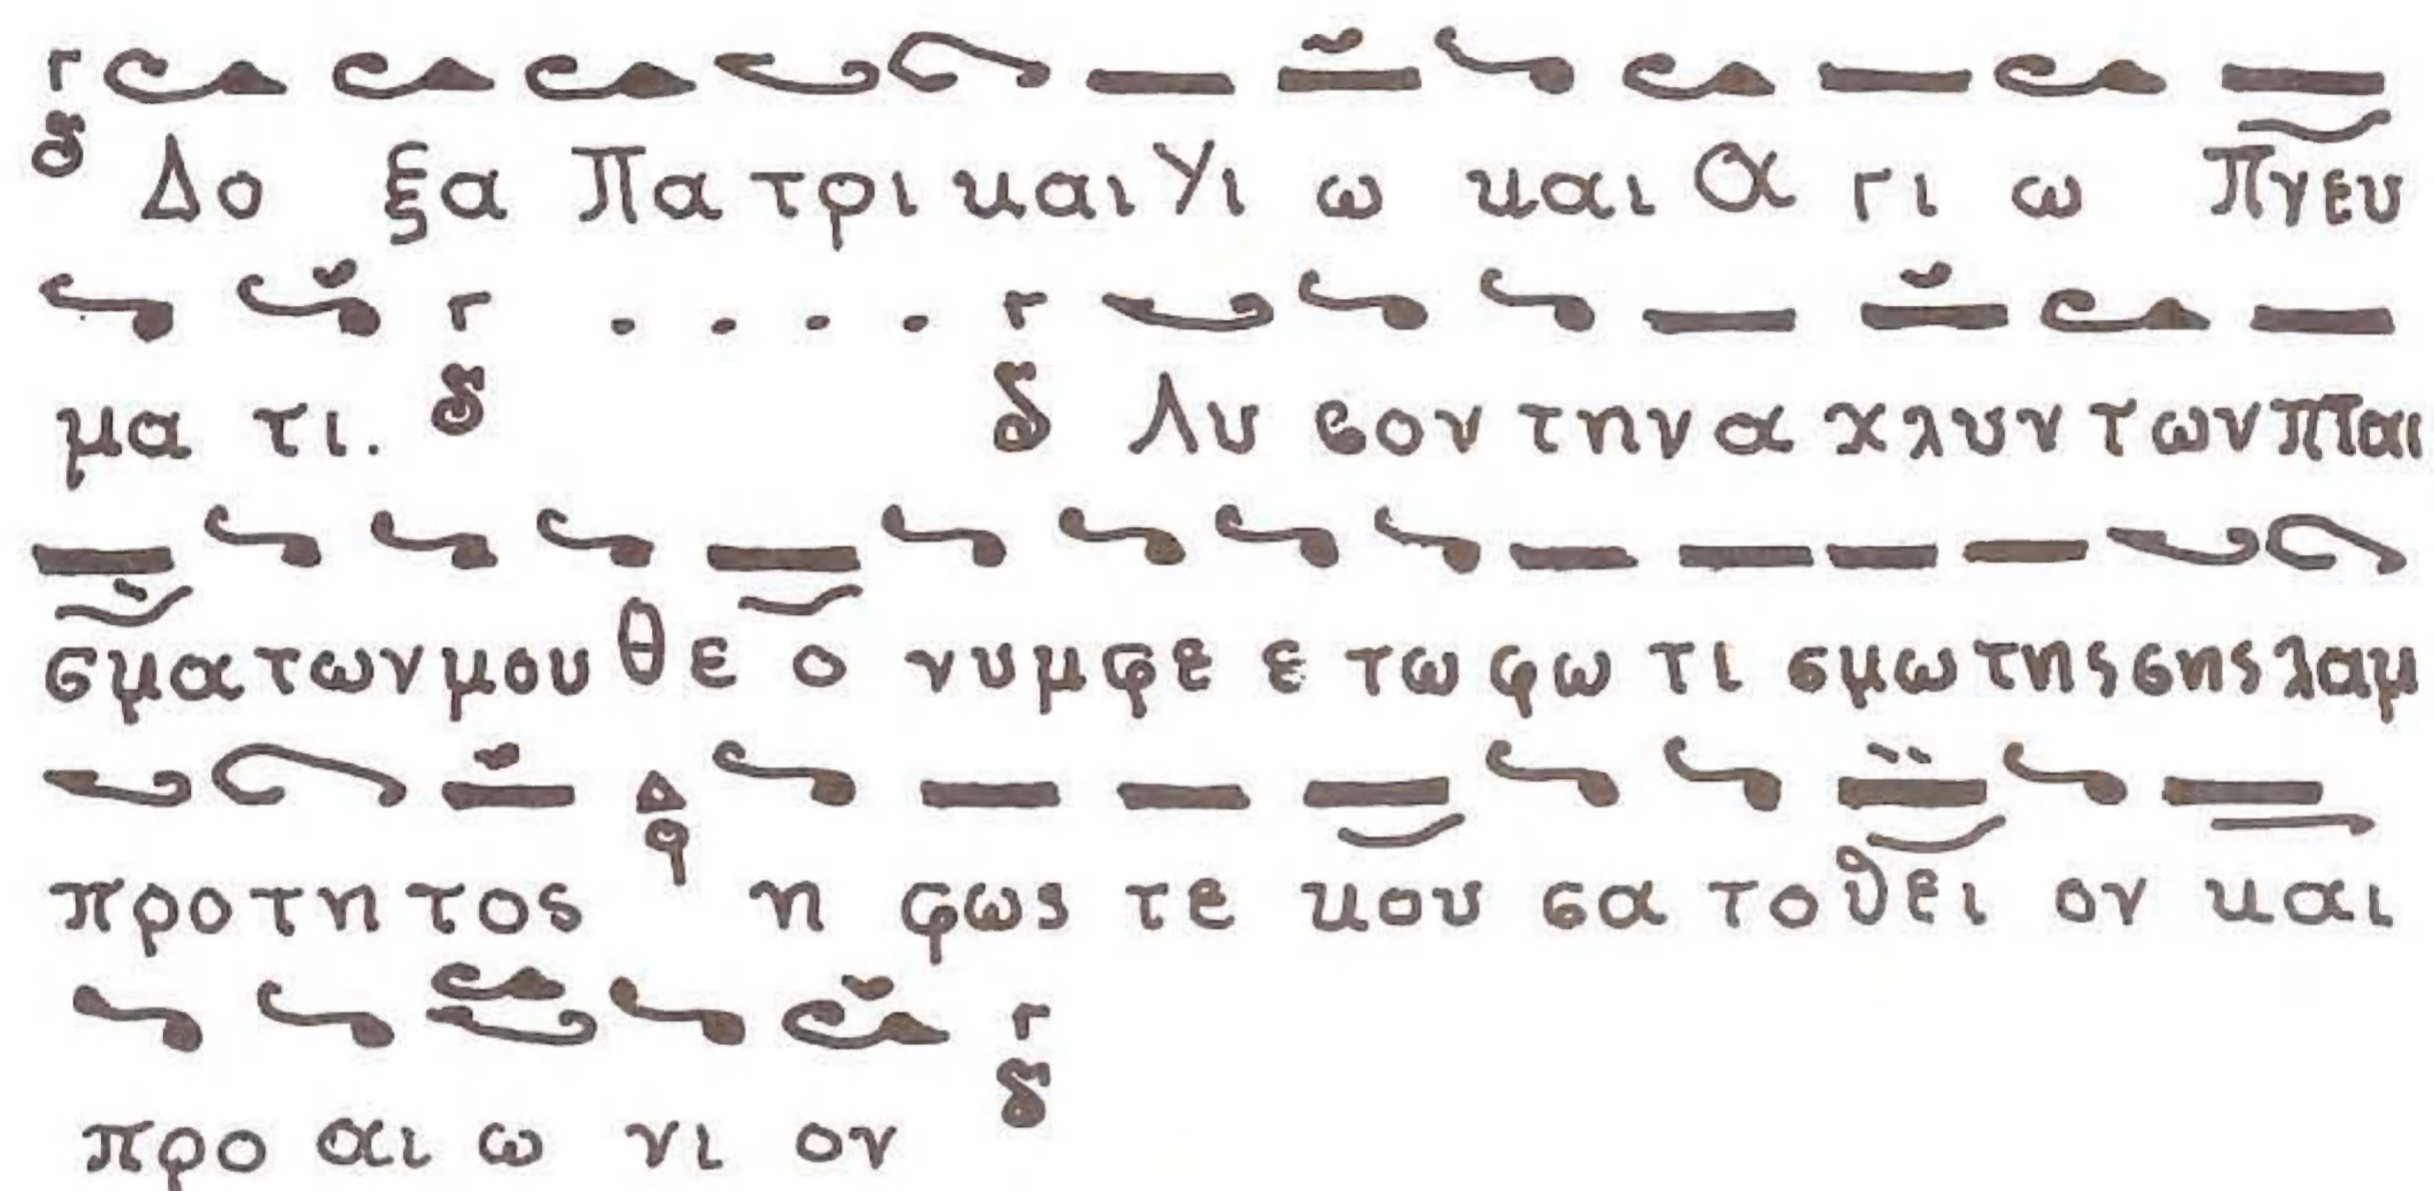 Δο ξα Πα τρι και Υι ω και Α γι ω Πνευ
μα τι. Λυ σον την α χλυν των πται
σμα των μου θε ο νυμ φε ε τω φω τι σμω της σης λαμ
προ τη τος η φως τε κου σα το θει ον και
προ αι ω νι ον